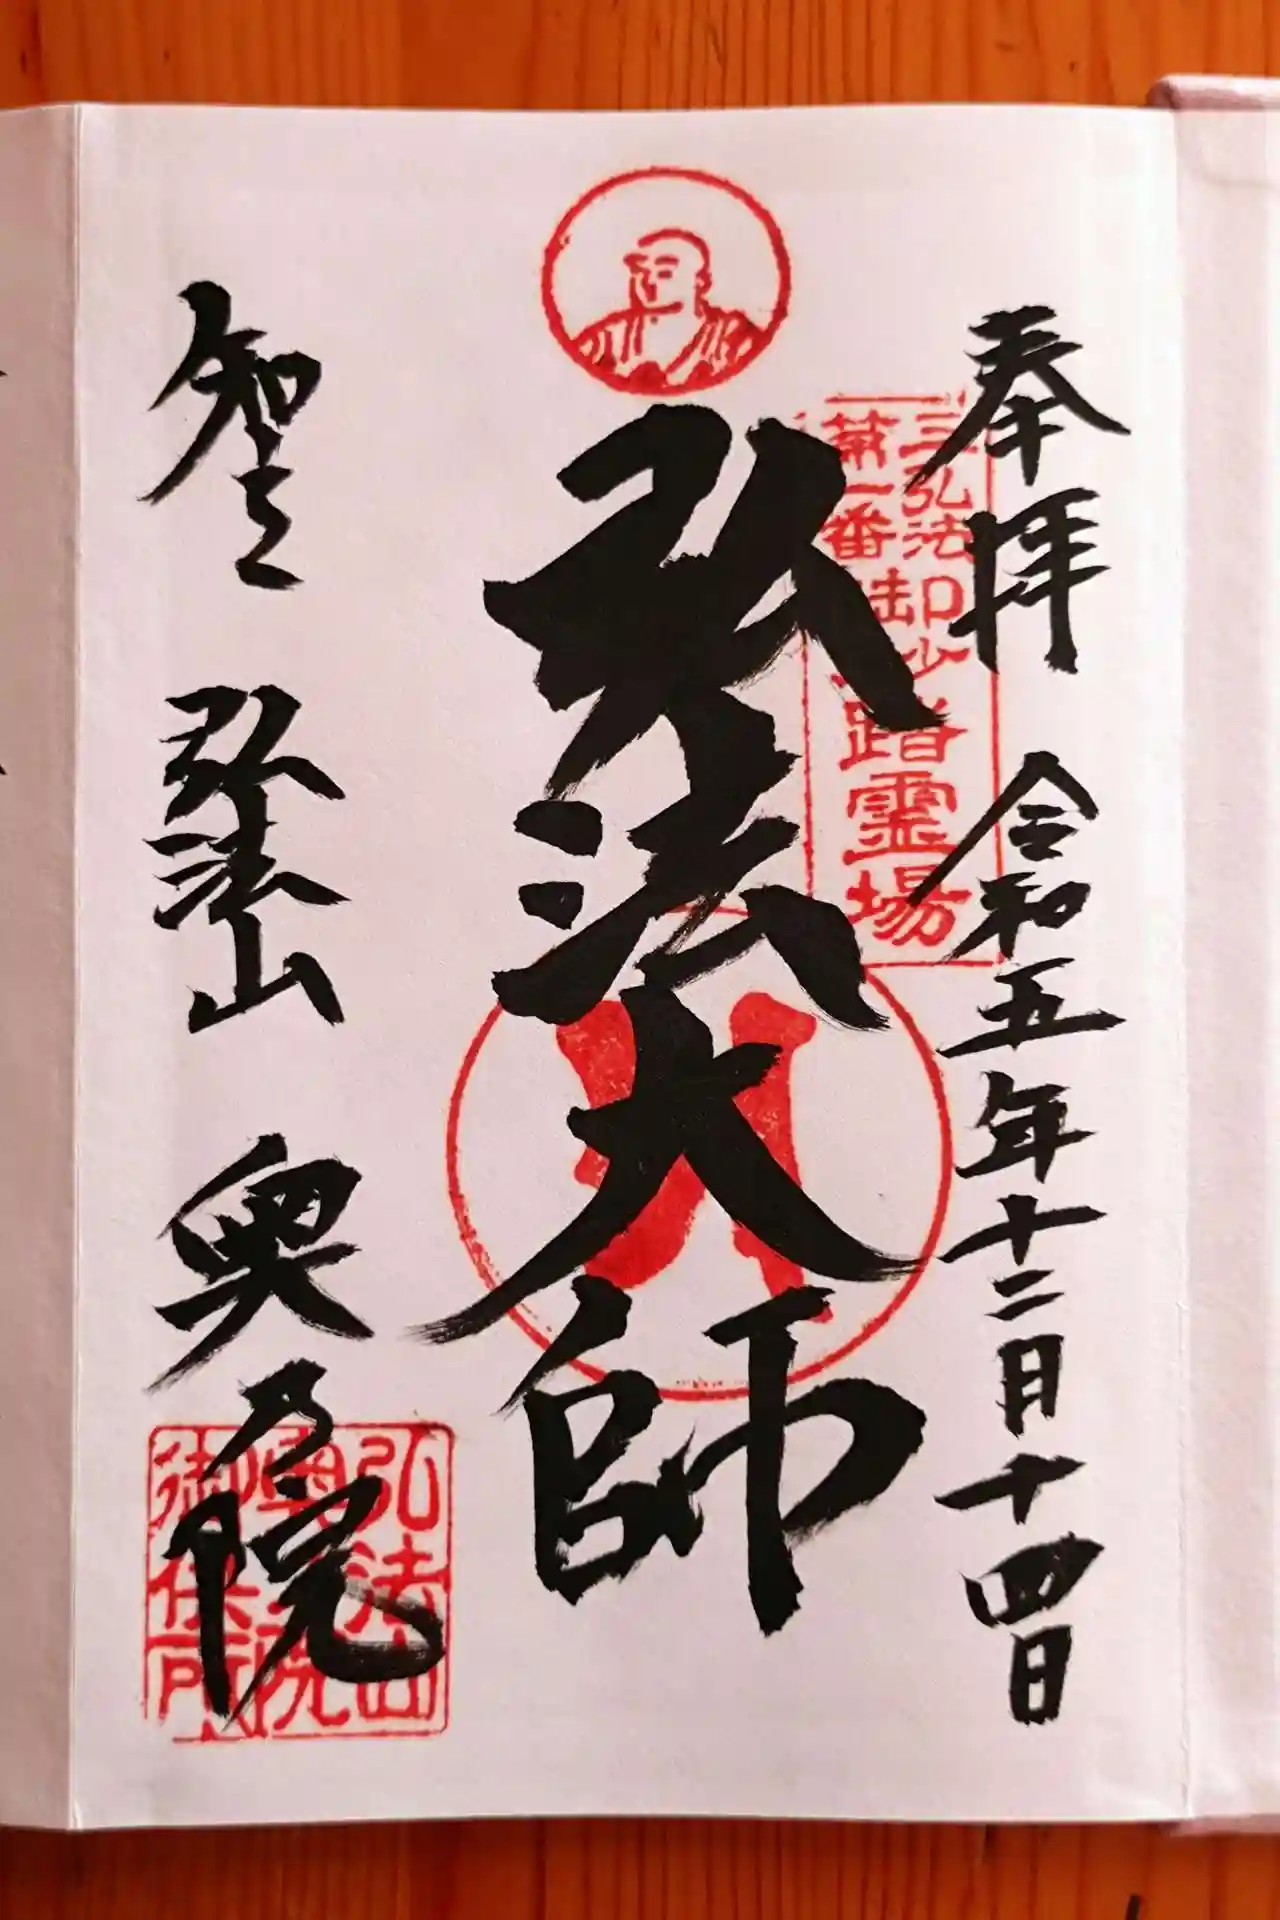 奉拝 令和五年十二月十四日
三弘法
第一番
御砂踏霊場
弘法大師
知立 弘法山 奥乃院
弘法山
奥 院
御 所